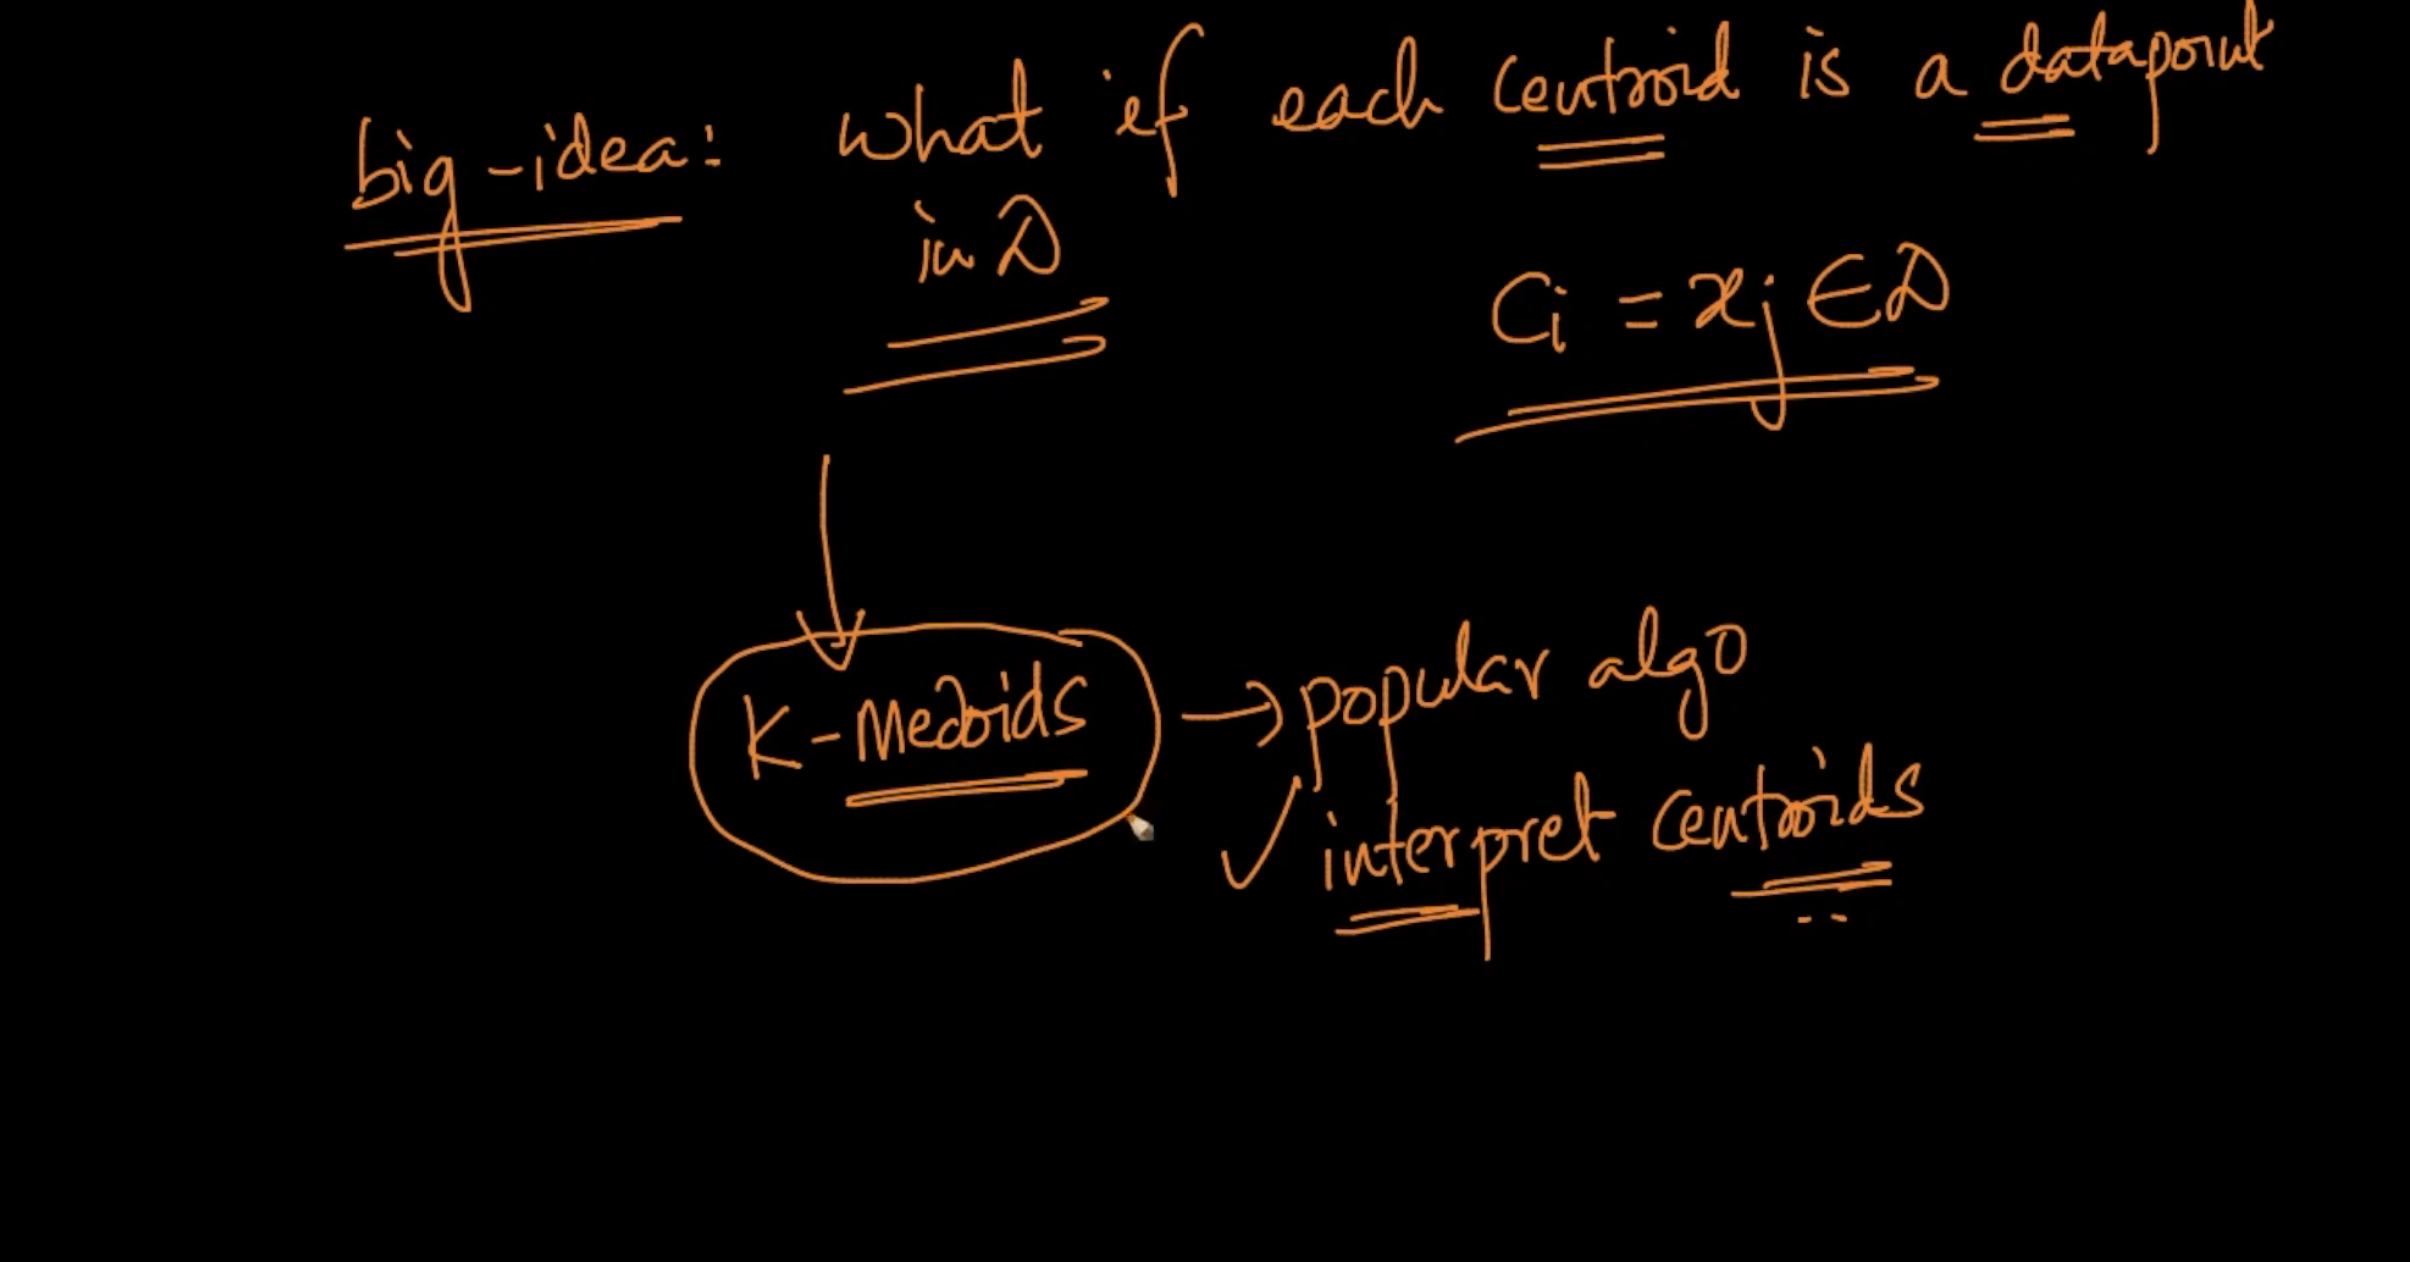 big-idea: what if each centroid is a datapoint
in D
Ci = xj ∈ D
K-Medoids → popular algo
✓ interpret centroids